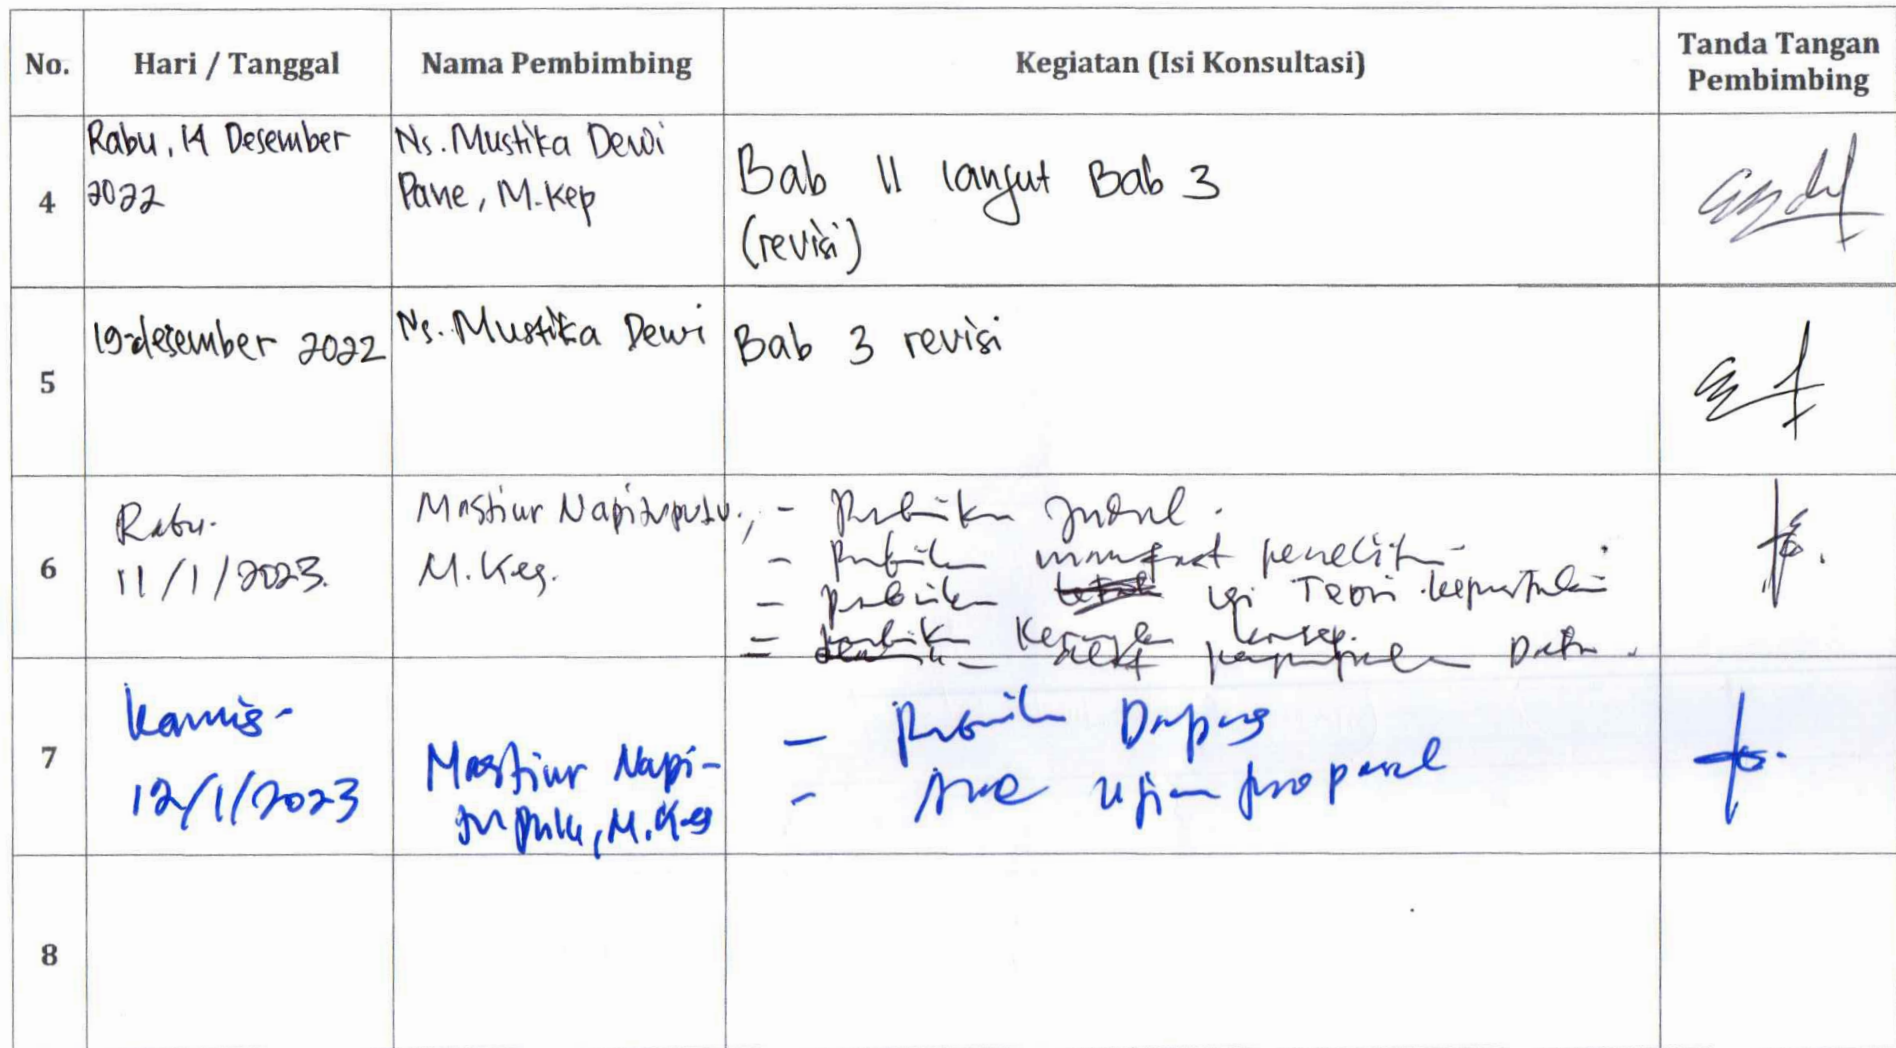 No.
Hari / Tanggal
Nama Pembimbing
Kegiatan (Isi Konsultasi)
Tanda Tangan
Pembimbing
4
Rabu, 14 Desember
2022
Ns. Mustika Dewi
Pane, M.Kep
Bab II lanjut Bab 3
(revisi)
5
19-desember 2022
Ns. Mustika Dewi
Bab 3 revisi
6
Rabu-
11/1/2023.
Mastiur Napitupulu.,
M.Kes.
- Perbaiki Judul.
- Perbaiki manfaat penelitian
- Perbaiki isi Teori
- Kerangka konsep.
- Data.
7
Kamis-
12/1/2023
Mastiur Napi-
tupulu, M.Kes
- Perbaiki Dapus
- Acc ujian proposal
8